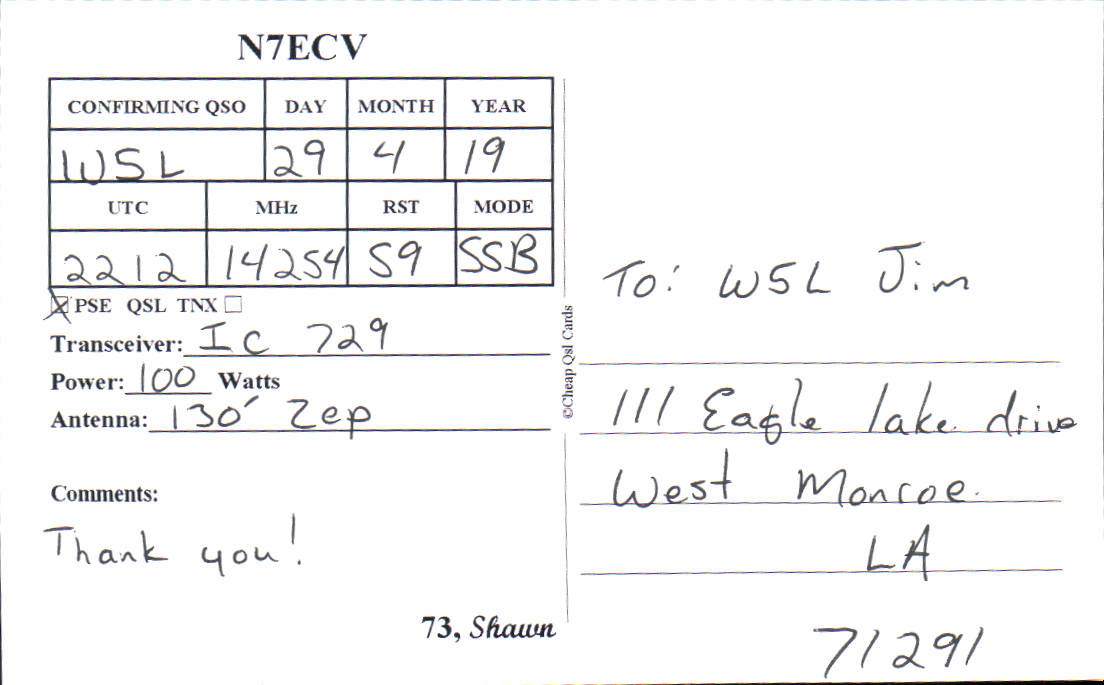 N7ECV
CONFIRMING QSO DAY MONTH YEAR
W5L 29 4 19
UTC MHz RST MODE
2212 14254 59 SSB
PSE QSL TNX
Transceiver: IC 729
Power: 100 Watts
Antenna: 130' Zep
Comments:
Thank you!
73, Shawn
©Cheap Qsl Cards
To: W5L Jim
111 Eagle lake drive
West Monroe
LA
71291